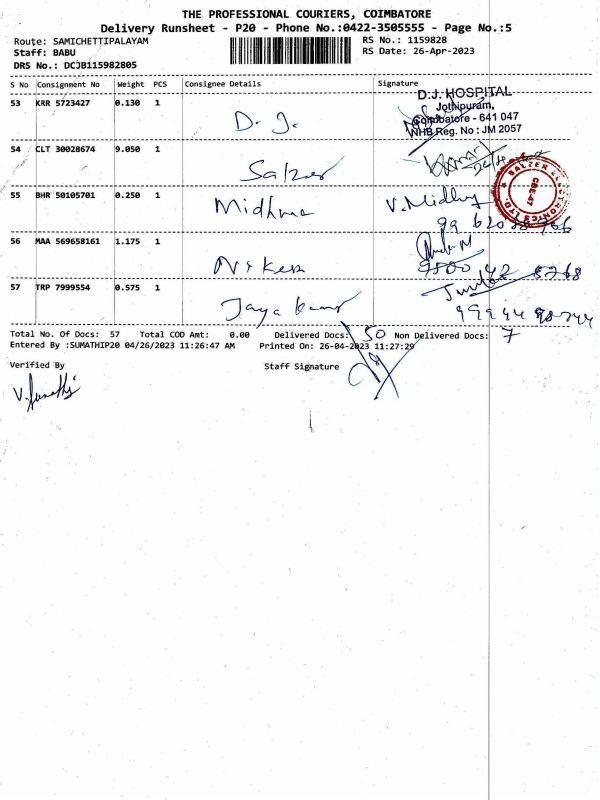 THE PROFESSIONAL COURIERS, COIMBATORE
Delivery Runsheet - P20 - Phone No.:0422-3505555 - Page No.:5
Route: SAMICHETTIPALAYAM
RS No.: 1159828
Staff: BABU
RS Date: 26-Apr-2023
DRS No.: DCJB115982805
S No Consignment No Weight PCS Consignee Details Signature
D.J. HOSPITAL
Jothipuram,
Coimbatore - 641 047
NHB Reg. No : JM 2057
53 KRR 5723427 0.130 1 D. J.
54 CLT 30028674 9.050 1 Salzer
SALZER ELECTRONICS LTD.
CBE-47
55 BHR 50105701 0.250 1 Midhma V. Midhu
56 MAA 569658161 1.175 1
57 TRP 7999554 0.575 1 Jaya
Total No. Of Docs: 57 Total COD Amt: 0.00 Delivered Docs: 50 Non Delivered Docs: 7
Entered By :SUMATHIP20 04/26/2023 11:26:47 AM Printed On: 26-04-2023 11:27:29
Verified By Staff Signature